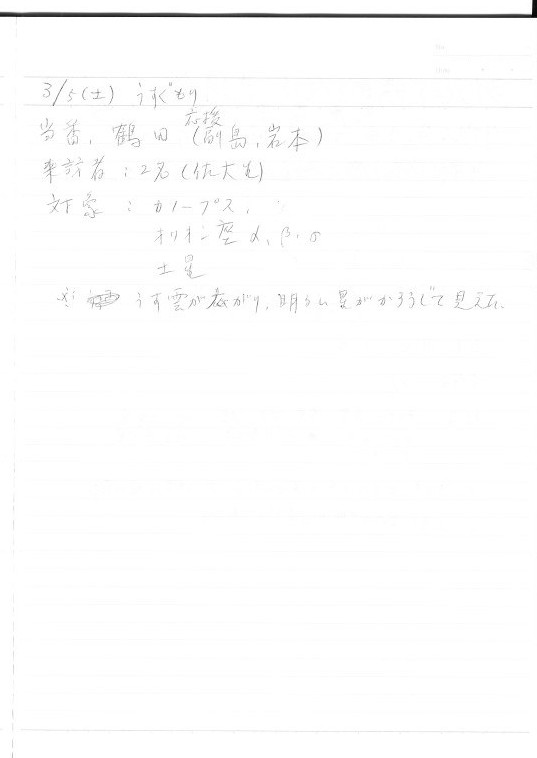 3/5(土) うすぐもり
当番. 鶴田 応援(副島, 岩本)
来訪者 : 2名 (佐大生)
対象 : カノープス,
オリオン座 α, β, σ
土星
※ うす雲が広がり, 明るい星がかろうじて見えた.